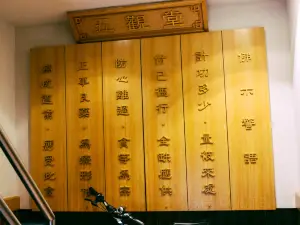 五觀堂
語
計功多少・量彼來處
忖己德行・全缺應供
防心離過・貪等為宗
正事良藥・為療形枯
為成道業・應受此食